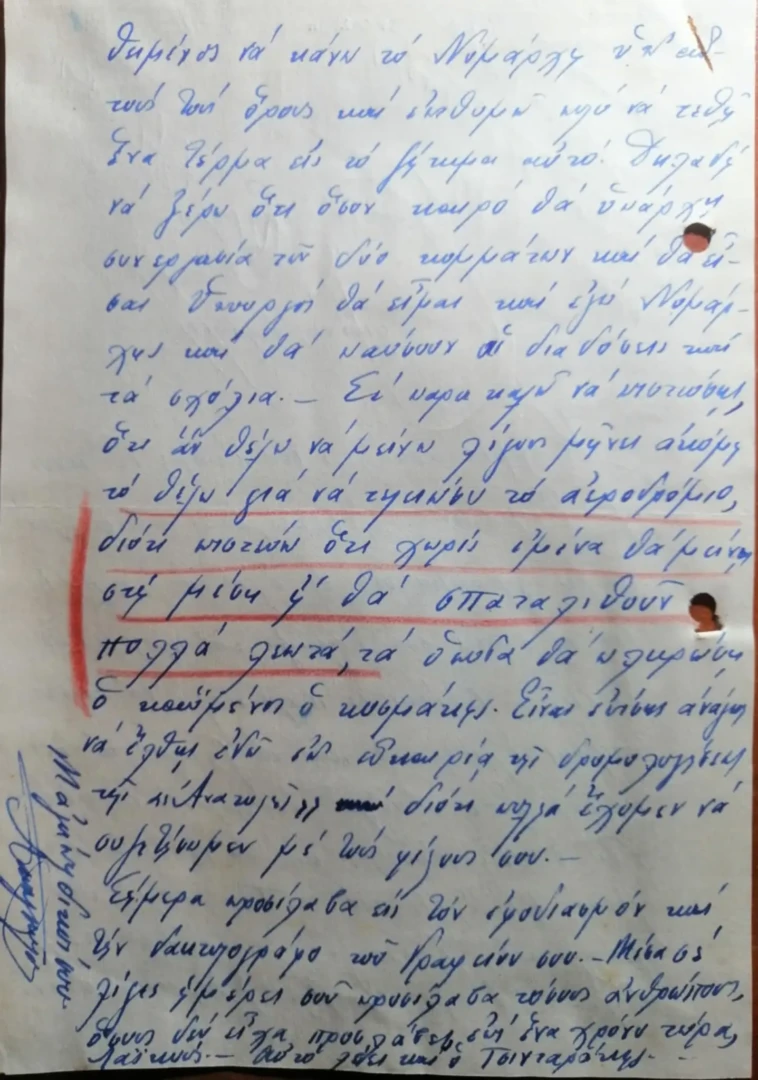 θημένος νά κάνω τό Νομάρχη ὑπ' αὐ-
τούς τούς ὅρους καί ἐπιθυμῶ πολύ νά τεθῇ
ἕνα τέρμα εἰς τό ζήτημα αὐτό. Δηλαδή
νά ξέρω ὅτι ὅσον καιρό θά ὑπάρχῃ
συνεργασία τῶν δύο κομμάτων καί θά εἶ-
σαι Ὑπουργός θά εἶμαι καί ἐγώ Νομάρ-
χης καί θά παύσουν οἱ διαδόσεις καί
τά σχόλια.— Σέ παρακαλῶ νά πιστεύσῃς,
ὅτι ἄν θέλω νά μείνω λίγους μῆνες ἀκόμη
τό θέλω γιά νά τελειώσω τό ἀεροδρόμιο,
διότι πιστεύω ὅτι χωρίς ἐμένα θά μείνῃ
στή μέση ἤ θά σπαταλιθοῦν
πολλά λεπτά, τά ὁποῖα θά πληρώσῃ
ὁ καϋμένος ὁ κοσμάκης. Εἶναι ἐπίσης ἀνάγκη
νά ἔλθῃς ἐδῶ ἐπ' εὐκαιρίᾳ τῆς δρομολογήσεως
τῆς διότι πολλά ἔχομεν νά
συζητήσωμεν μέ τούς φίλους σου.—
Σήμερα προσέλαβα εἰς τόν ἐφοδιασμόν καί
τήν δακτυλογράφο τοῦ Γραφείου σου.— Μέσα σέ
λίγες ἡμέρες σοῦ προσέλαβα τόσους ἀνθρώπους,
ὅσους δέν εἶχα προσλάβει ἐπί ἕνα χρόνο τώρα,
Λαϊκούς.— Αὐτό λέει καί ὁ Τσινταράκης.—
Μέ ἀγάπη δικός σου